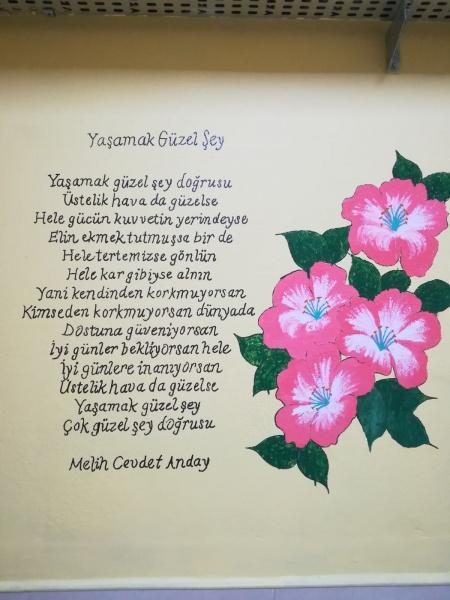 Yaşamak Güzel Şey
Yaşamak güzel şey doğrusu
Üstelik hava da güzelse
Hele gücün kuvvetin yerindeyse
Elin ekmek tutmuşsa bir de
Hele tertemizse gönlün
Hele kar gibiyse alnın
Yani kendinden korkmuyorsan
Kimseden korkmuyorsan dünyada
Dostuna güveniyorsan
İyi günler bekliyorsan hele
İyi günlere inanıyorsan
Üstelik hava da güzelse
Yaşamak güzel şey
Çok güzel şey doğrusu
Melih Cevdet Anday